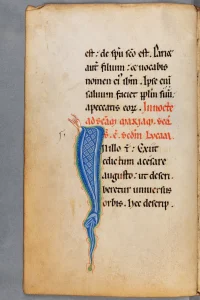 est: de spu sco est. Pariet
aut filium: & uocabis
nomen ei ihm. Ipse eni
saluum faciet pplm suu
a peccatis eor. In nocte
ad scam mariam.
s. e. scdm lucam.
In illo t: Exiit
edictum a cesare
augusto: ut descri
beretur uniuersus
orbis. hec descrip